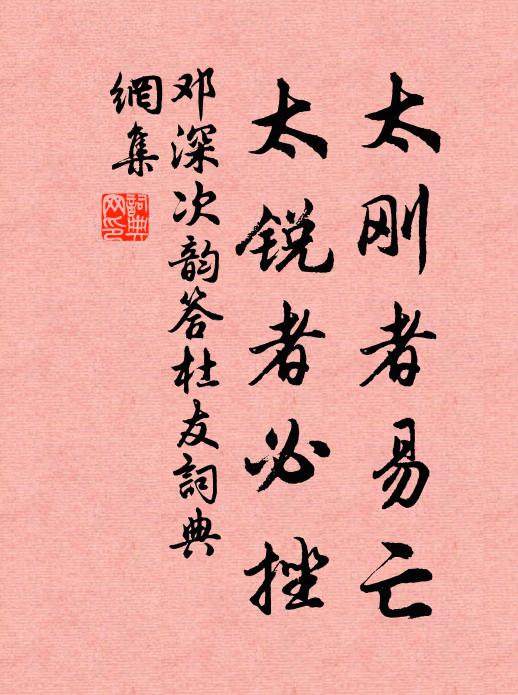 太刚者易亡
太锐者必挫
邓深次韵答杜友詞典
網集
詞典
网印